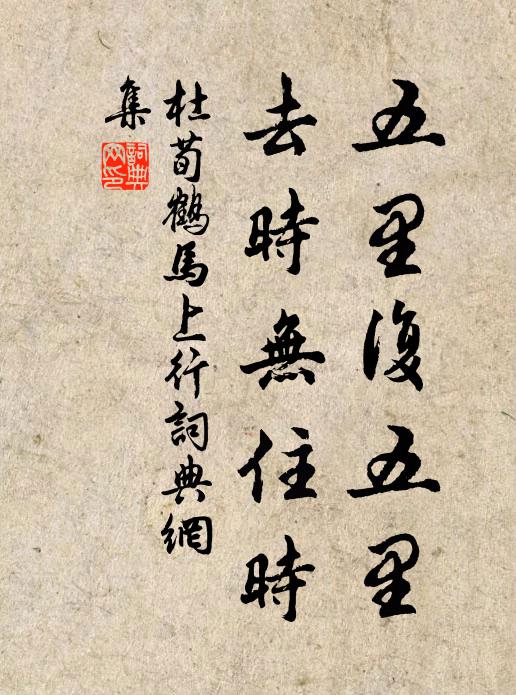 五里復五里
去時無住時
杜荀鶴馬上行詞典網
集
詞典
网印